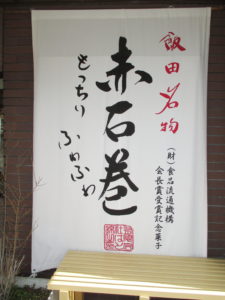 飯田名物
(財)食品流通機構
会長賞受賞記念菓子
赤石巻
もっちり ふわふわ